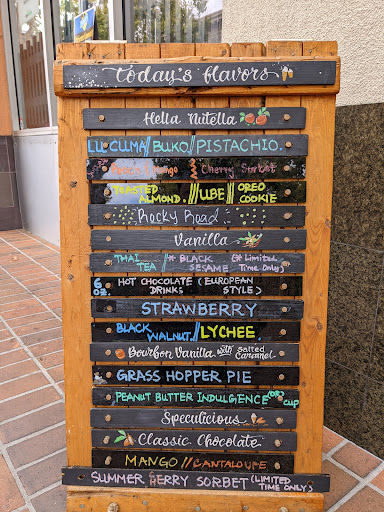 today's flavors
Hella Nutella
LUCUMA // BUKO // PISTACHIO.
Mango Cherry Sorbet
TOASTED ALMOND. // UBE // OREO COOKIE
Rocky Road
Vanilla
THAI TEA // * BLACK SESAME (* Limited Time Only)
6 oz. HOT CHOCOLATE (EUROPEAN DRINKS STYLE)
STRAWBERRY
BLACK WALNUT // LYCHEE.
Bourbon Vanilla with Salted Caramel
GRASS HOPPER PIE
PEANUT BUTTER INDULGENCE (OR) CUP
Speculicious
Classic Chocolate
MANGO // CANTALOUPE
SUMMER BERRY SORBET (LIMITED TIME ONLY)